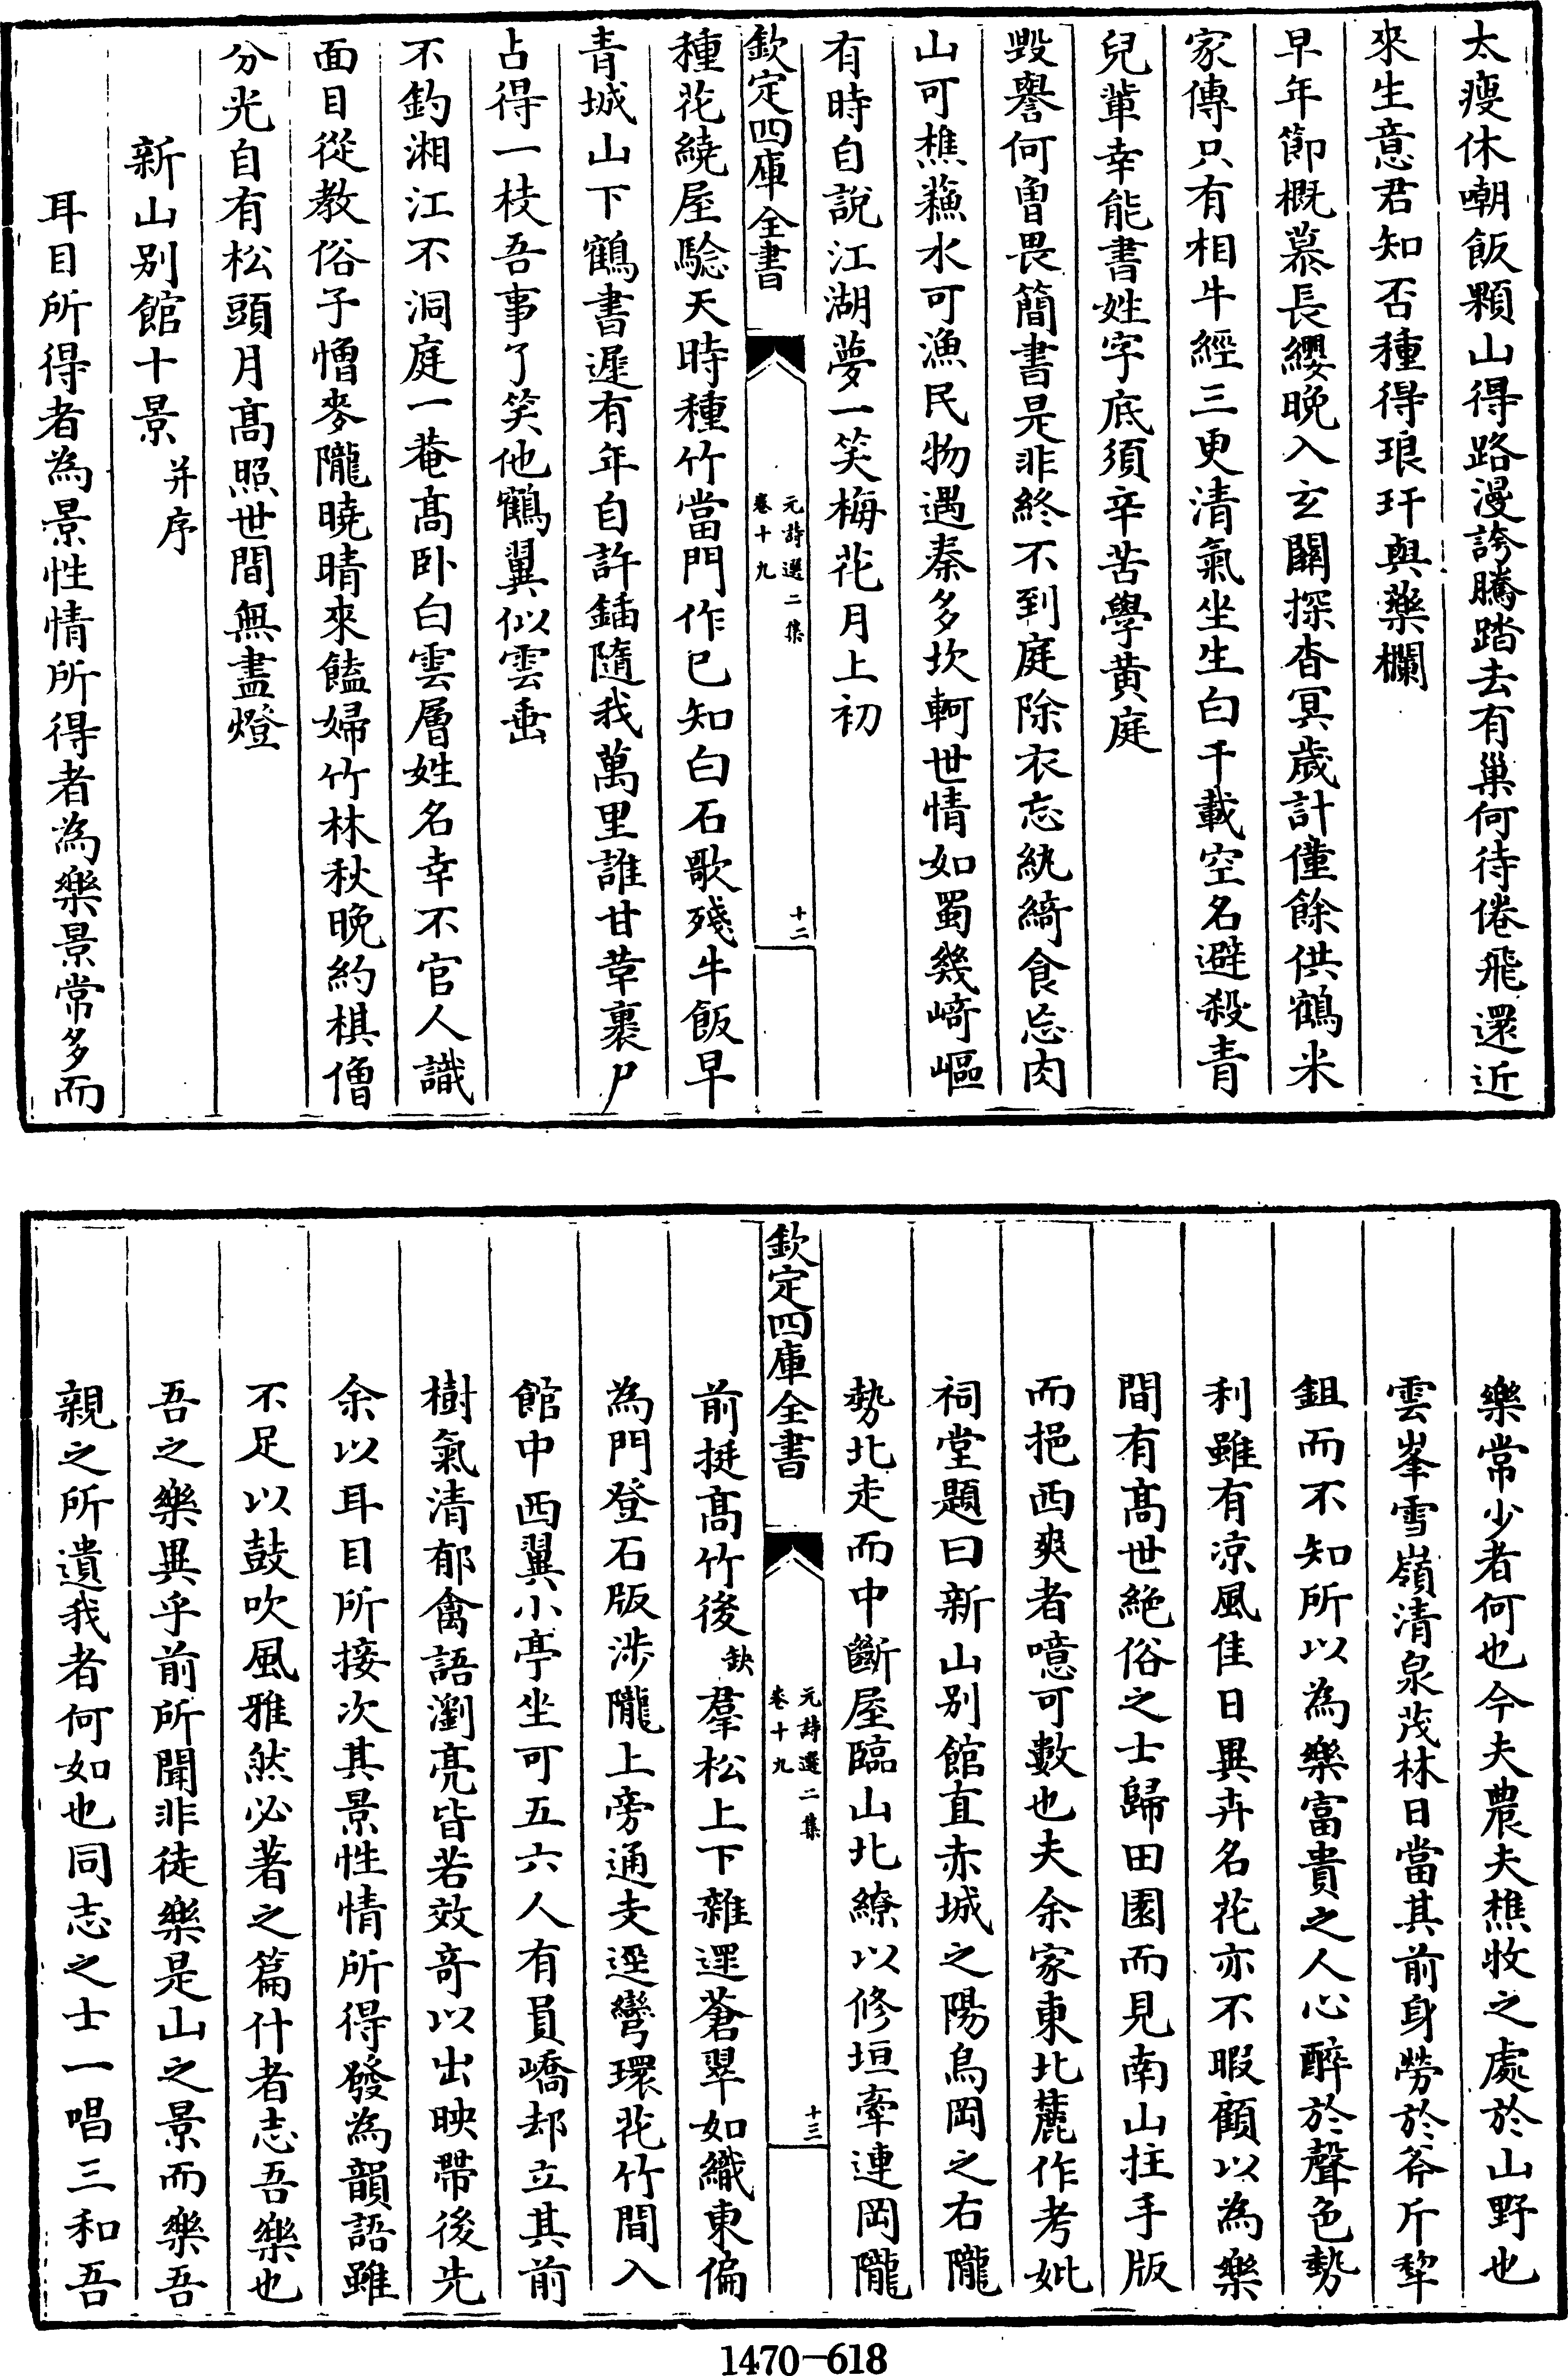 太瘦休嘲飯顆山得路漫誇騰踏去有巢何待倦飛還近
來生意君知否種得琅玕與藥欄
早年節概慕長纓晚入玄關探杳冥歲計僅餘供鶴米
家傳只有相牛經三更清氣坐生白千載空名避殺青
兒輩幸能書姓字底須辛苦學黄庭
毀譽何曾畏簡書是非終不到庭除衣忘紈綺食忘肉
山可樵蘓水可漁民物遇秦多坎軻世情如蜀幾﨑嶇
有時自說江湖夢一笑梅花月上初
欽定四庫全書
元詩選二集
卷十九
十二
種花繞屋驗天時種竹當門作已知白石歌殘牛飯早
青城山下鶴書遲有年自許鍤隨我萬里誰甘革裹尸
占得一枝吾事了笑他鶴翼似雲垂
不釣湘江不洞庭一菴髙卧白雲層姓名幸不官人識
面目從教俗子憎麥隴曉晴來饁婦竹林秋晚約棋僧
分光自有松頭月髙照世間無盡燈
新山别館十景并序
耳目所得者為景性情所得者為樂景常多而
樂常少者何也今夫農夫樵牧之處於山野也
雲峯雪嶺清泉茂林日當其前身勞於斧斤犂
鉏而不知所以為樂富貴之人心醉於聲色勢
利雖有凉風佳日異卉名花亦不暇顧以為樂
間有髙世絶俗之士歸田園而見南山拄手版
而挹西爽者噫可數也夫余家東北麓作考妣
祠堂題曰新山别館直赤城之陽烏岡之右隴
勢北走而中斷屋臨山北繚以修垣牽連岡隴
欽定四庫全書
元詩選二集
卷十九
十三
前挺髙竹後缺羣松上下雜遝蒼翠如織東偏
為門登石版涉隴上旁通支逕彎環花竹間入
館中西翼小亭坐可五六人有員嶠却立其前
樹氣清郁禽語瀏亮皆若效奇以出映帶後先
余以耳目所接次其景性情所得發為韻語雖
不足以鼓吹風雅然必著之篇什者志吾樂也
吾之樂異乎前所聞非徒樂是山之景而樂吾
親之所遺我者何如也同志之士一唱三和吾
1470-618